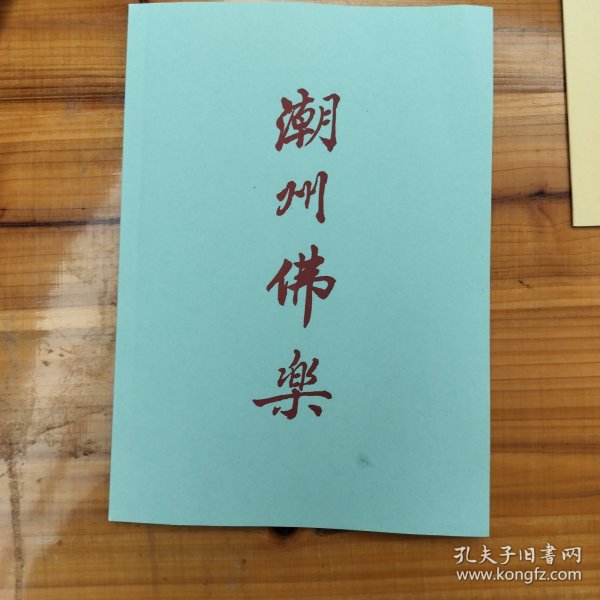 潮州佛楽
孔夫子旧書网
www.kongfz.com